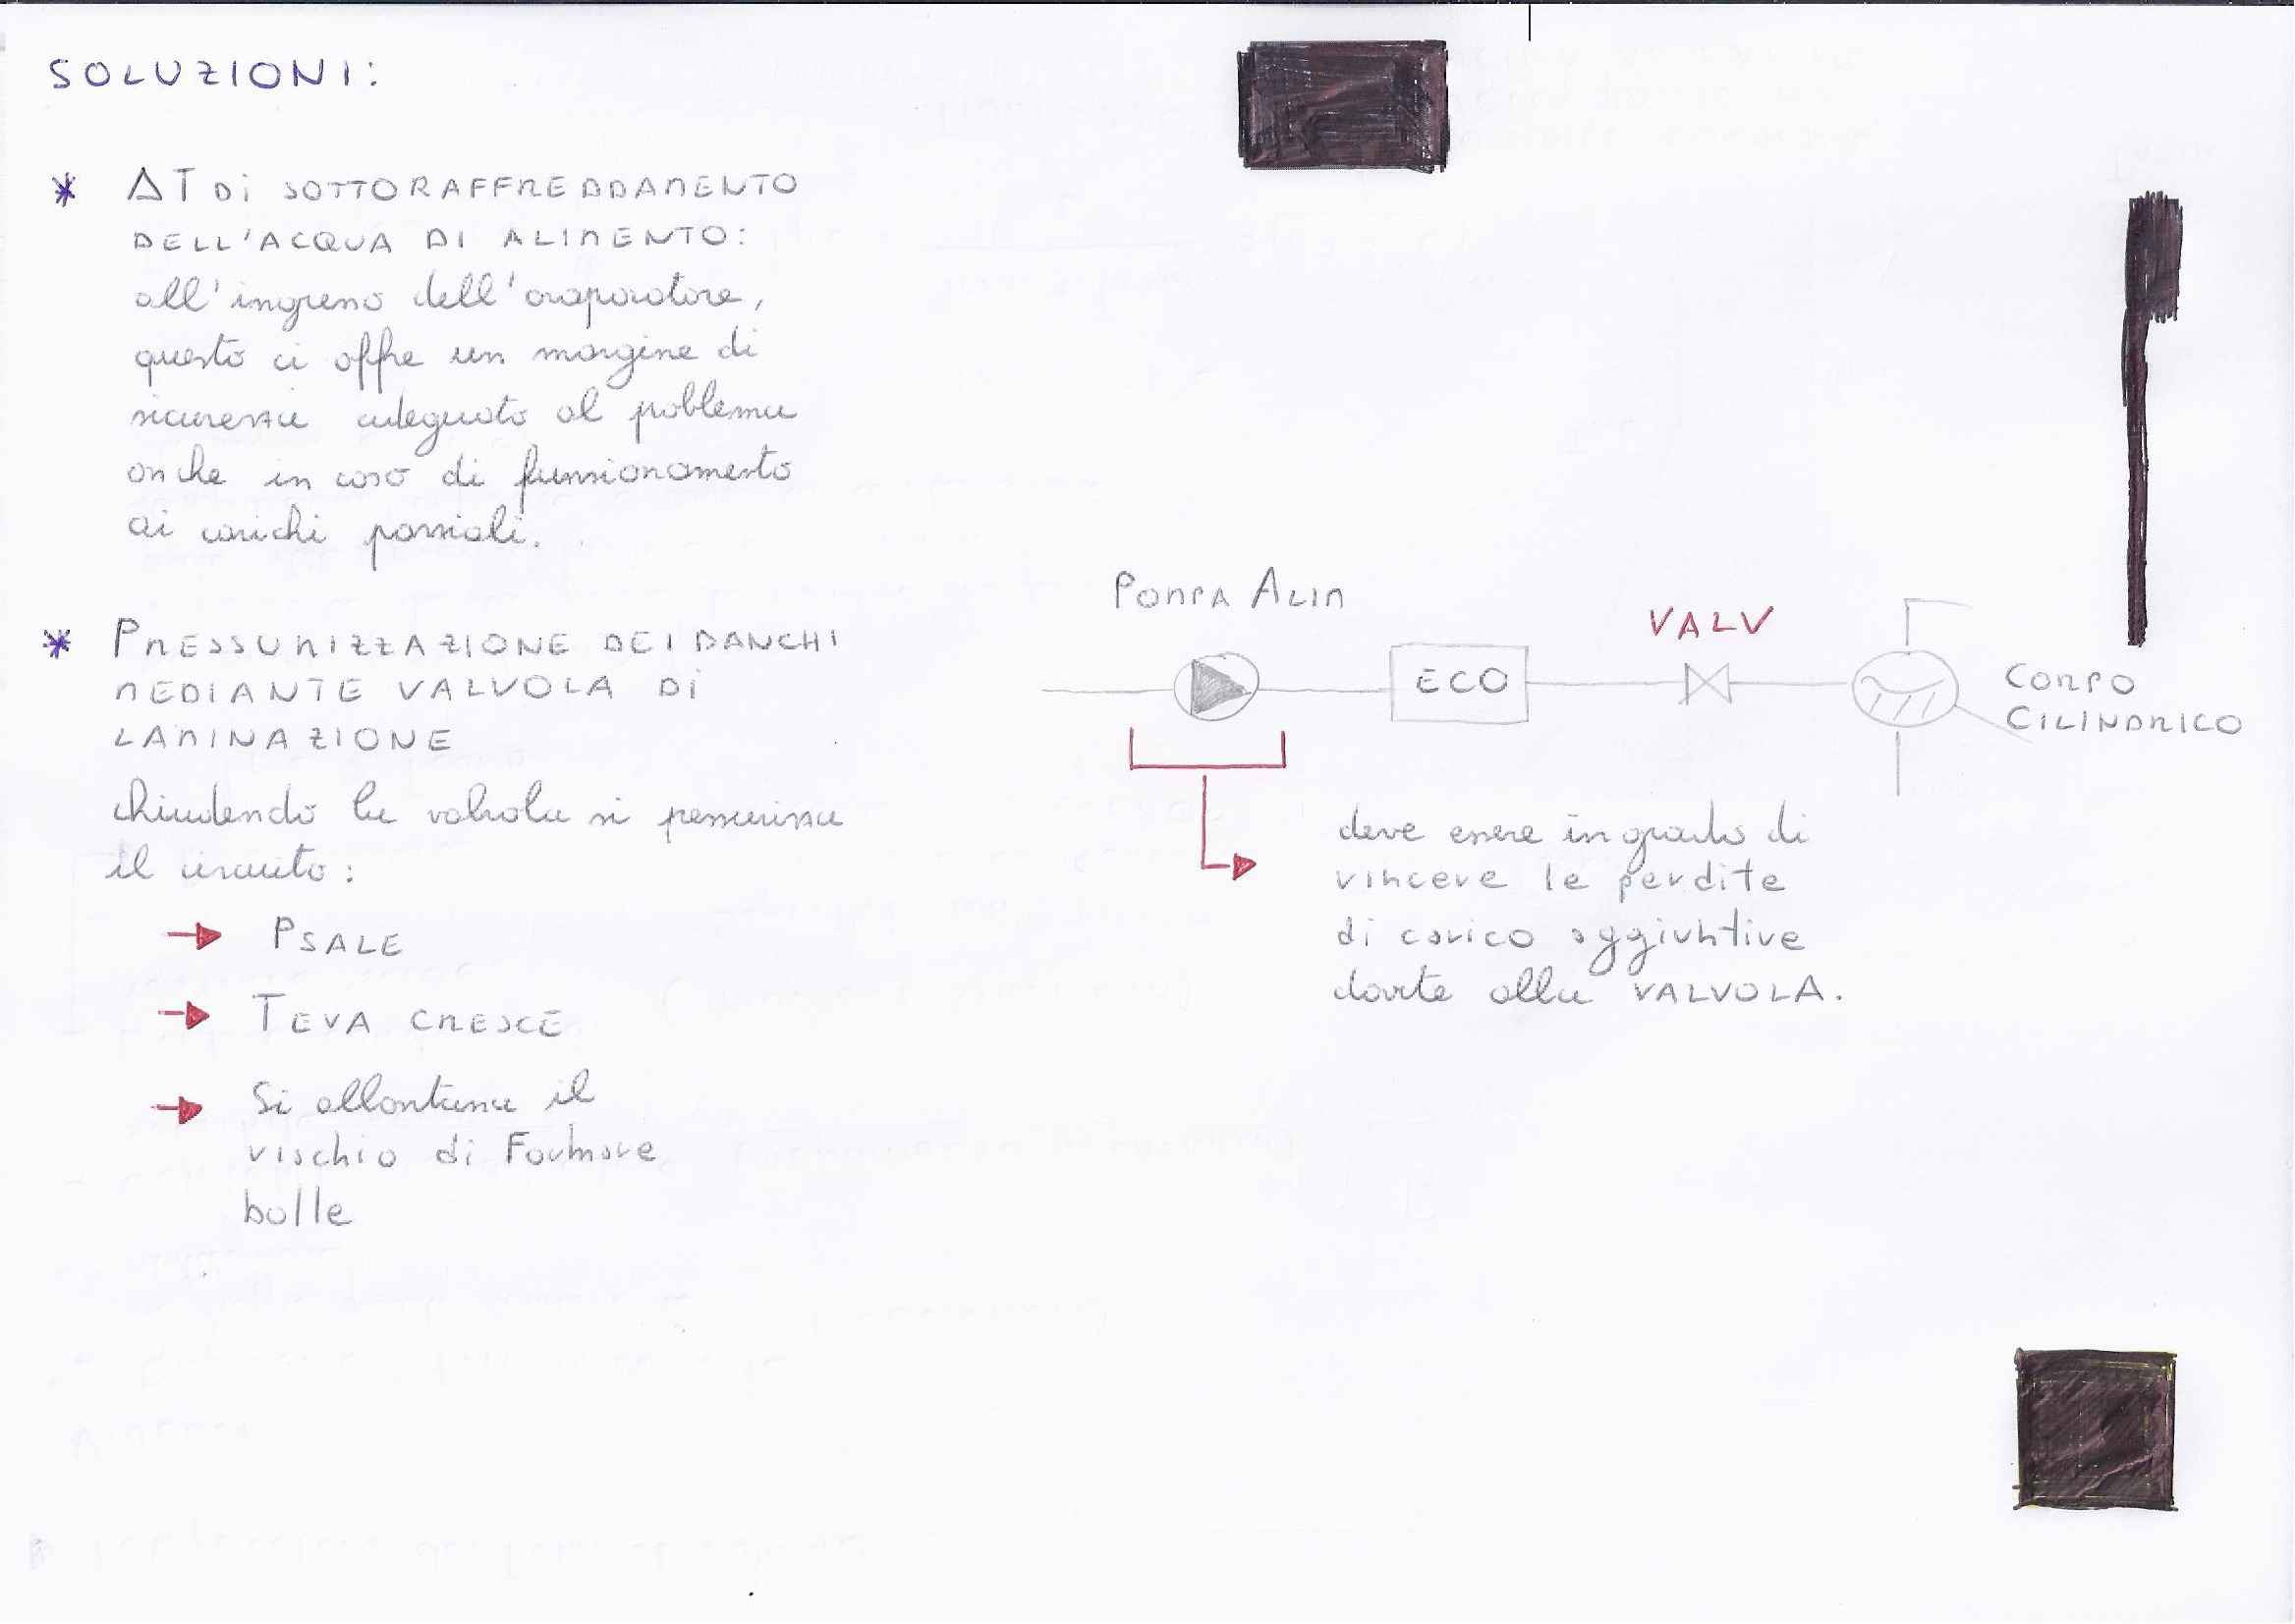 SOLUZIONI:
* ΔT DI SOTTORAFFREDDAMENTO
DELL'ACQUA DI ALIMENTO:
all'ingresso dell'evaporatore,
questo ci offre un margine di
sicurezza adeguato al problema
anche in caso di funzionamento
ai carichi parziali.
* PRESSURIZZAZIONE DEI BANCHI
MEDIANTE VALVOLA DI
LAMINAZIONE
chiudendo la valvola si pressurizza
il circuito:
→ P SALE
→ TEVA CRESCE
→ Si allontana il
rischio di Formare
bolle
POMPA ALIM
ECO
VALV
CORPO
CILINDRICO
deve essere in grado di
vincere le perdite
di carico aggiuntive
dovute alla VALVOLA.